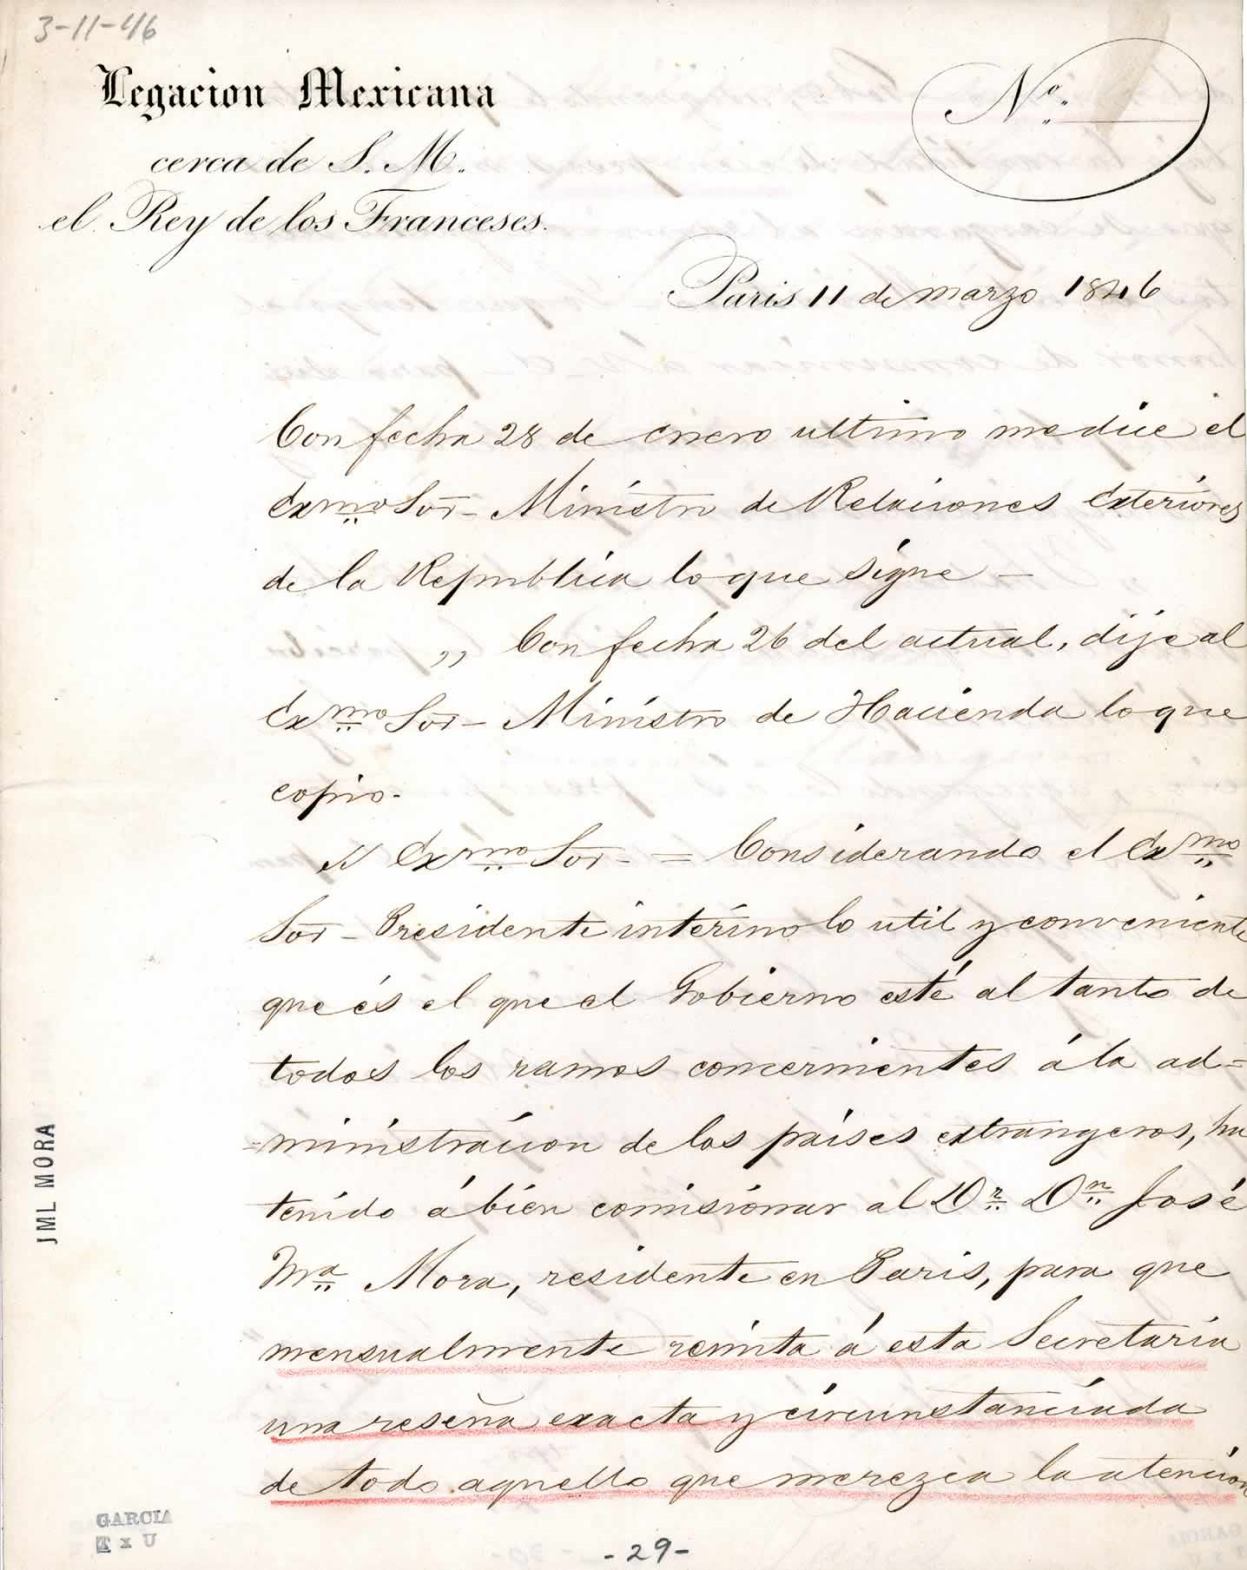 3-11-46
Legacion Mexicana
cerca de S. M.
el Rey de los Franceses.
Nº.
Paris 11 de marzo 1846
Con fecha 28 de enero ultimo me dice el
Exmo Sor- Ministro de Relaciones Exteriores
de la Republica lo que sigue -
,, Con fecha 26 del actual, dije al
Exmo Sor- Ministro de Hacienda lo que
copio-
,, Exmo Sor- = Considerando el Exmo
Sor- Presidente interino lo util y conveniente
que és el que el Gobierno esté al tanto de
todos los ramos concernientes á la ad=
=ministracion de los paises extrangeros, ha
tenido á bien comisionar al Dr. Dn José
Ma Mora, residente en Paris, para que
mensualmente remita á esta Secretaria
una reseña exacta y circunstanciada
de todo aquello que merezca la atencion
JML MORA
GARCIA
T x U
-29-